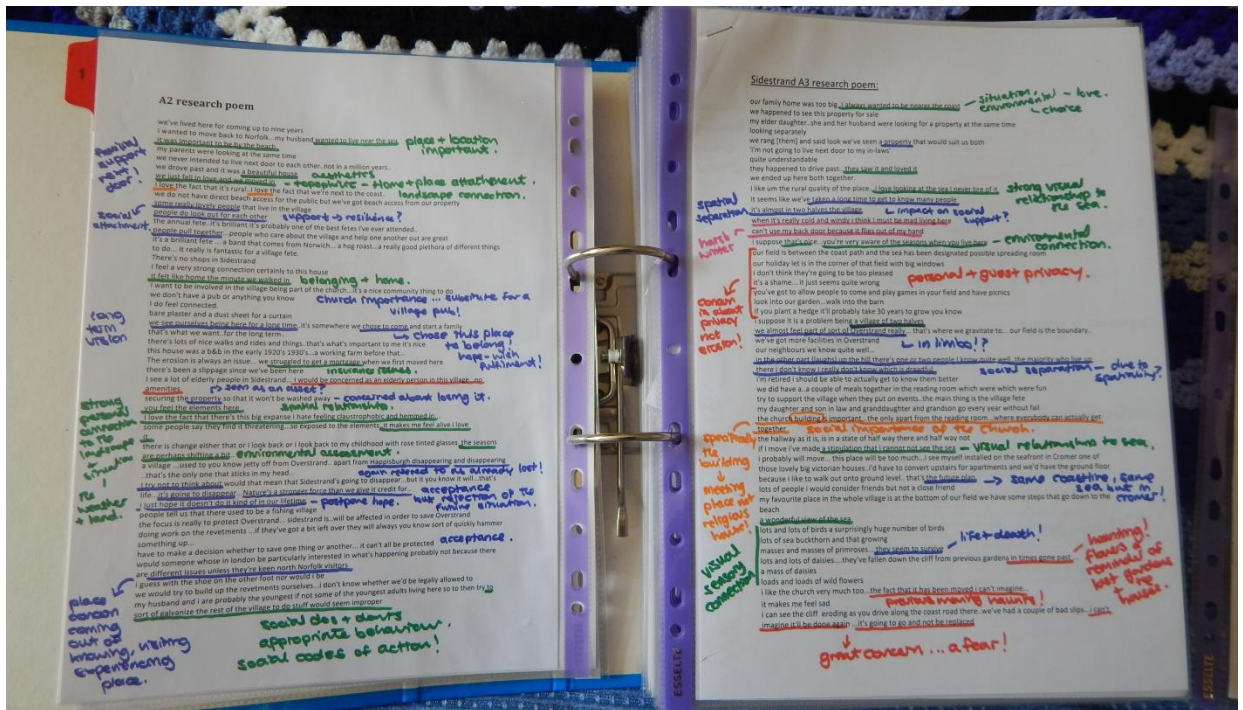 1
A2 research poem
we've lived here for coming up to nine years
I wanted to move back to Norfolk...my husband wanted to live near the sea
it was important to be by the beach
place + location important.
my parents were looking at the same time
we never intended to live next door to each other..not in a million years..
we drove past and it was a beautiful house
aesthetics
we just fell in love and we moved in
I love the fact that it's rural..I love the fact that we're next to the coast..
- topophilia - Home + place attachment.
landscape connection.
we do not have direct beach access for the public but we've got beach access from our property
some really lovely people that live in the village
people do look out for each other
support → resilience?
the annual fete..it's brilliant it's probably one of the best fetes I've ever attended..
people pull together...people who care about the village and help one another out are great
it's a brilliant fete ... a band that comes from Norwich... a hog roast...a really good plethora of different things
to do... it really is fantastic for a village fete.
There's no shops in Sidestrand
I feel a very strong connection certainly to this house
it felt like home the minute we walked in
belonging + home.
I want to be involved in the village being part of the church...it's a nice community thing to do
we don't have a pub or anything you know
Church importance ... substitute for a village pub!
I do feel connected.
bare plaster and a dust sheet for a curtain
we see ourselves being here for a long time..it's somewhere we chose to come and start a family
↳ chose this place to belong, hope - wish fulfilment!
that's what we want..for the long term..
there's lots of nice walks and rides and things..that's what's important to me it's nice
this house was a b&b in the early 1920's 1930's...a working farm before that...
The erosion is always an issue... we struggled to get a mortgage when we first moved here
there's been a slippage since we've been here
insurance issues.
I see a lot of elderly people in Sidestrand....I would be concerned as an elderly person in this village...no
amenities...
↳ seen as an asset?
securing the property so it won't be washed away
- concerned about losing it.
you feel the elements here
spatial relationship.
I love the fact that there's this big expanse I hate feeling claustrophobic and hemmed in.
some people say they find it threatening...so exposed to the elements..it makes me feel alive I love
it
there is change either that or I look back or I look back to my childhood with rose tinted glasses..the seasons
are perhaps shifting a bit
environmental assessment.
a village ...used to you know jetty off from Overstrand.. apart from Happisburgh disappearing and disappearing
...that's the only one that sticks in my head.
again refered to as already lost!
I try not to think about would that mean that Sidestrand's going to disappear...but if you know it will...that's
life.. it's going to disappear.. Nature's a stronger force than we give it credit for..
acceptance but rejection of the future situation.
I just hope it doesn't do it kind of in our lifetime
- postpone hope.
people tell us that there used to be a fishing village
the focus is really to protect Overstrand... sidestrand is..will be affected in order to save Overstrand
doing work on the revetments ...if they've got a bit left over they will always you know sort of quickly hammer
something up...
have to make a decision whether to save one thing or another... it can't all be protected
acceptance.
would someone whose in London be particularly interested in what's happening probably not because there
are different issues unless they're keen north Norfolk visitors
i guess with the shoe on the other foot nor would i be
we would try to build up the revetments ourselves...I don't know whether we'd be legally allowed to
my husband and i are probably the youngest if not some of the youngest adults living here so to then try to
sort of galvanize the rest of the village to do stuff would seem improper
social dos + donts
appropriate behaviour.
social codes of action!
familial support next door!
social attachment.
long term vision
strong personal connection to the landscape + situation! the weather + land
place concern coming out of knowing, visiting experiencing place.
Sidestrand A3 research poem:
our family home was too big..I always wanted to be nearer the coast
- situation, environmental - love.
↳ choice
we happened to see this property for sale
my elder daughter..she and her husband were looking for a property at the same time
looking separately
we rang [them] and said look we've seen a property that would suit us both
'I'm not going to live next door to my in-laws'
quite understandable
they happened to drive past..they saw it and loved it
we ended up here both together.
I like um the rural quality of the place..I love looking at the sea I never tire of it
strong visual relationship to the sea.
It seems like we've taken a long time to get to know many people
it's almost in two halves the village
↳ impact on social support?
when it's really cold and windy i think I must be mad living here
can't use my back door because it flies out of my hand
i suppose that's nice...you're very aware of the seasons when you live here
- environmental connection.
our field is between the coast path and the sea has been designated possible spreading room
our holiday let is in the corner of that field with big windows
I don't think they're going to be too pleased
it's a shame... it just seems quite wrong
personal + guest privacy.
you've got to allow people to come and play games in your field and have picnics
look into our garden...walk into the barn
if you plant a hedge it'll probably take 30 years to grow you know
I suppose it is a problem being a village of two halves
we almost feel part of sort of Overstrand really... that's where we gravitate to... our field is the boundary..
we've got more facilities in Overstrand
↳ in limbo!?
our neighbours we know quite well...
in the other part (laughs) up the hill there's one or two people I know quite well..the majority who live up
there i don't know I really don't know which is dreadful
social separation - due to spatiality?
i'm retired i should be able to actually get to know them better
we did have a..a couple of meals together in the reading room which were which were fun
try to support the village when they put on events..the main thing is the village fete
my daughter and son in law and granddaughter and grandson go every year without fail
the church building is important...the only apart from the reading room ...where everybody can actually get
together.
social importance of the church.
the hallway as it is, is in a state of half way there and half way not
If I move i've made a stipulation that I cannot not see the sea
- visual relationship to sea.
i probably will move... this place will be too much...I see myself installed on the seafront in Cromer one of
those lovely big victorian houses...I'd have to convert upstairs for apartments and we'd have the ground floor
because i like to walk out onto ground level.. that's the future plan
→ same coastline, same sea but in cromer!
lots of people i would consider friends but not a close friend
my favourite place in the whole village is at the bottom of our field we have some steps that go down to the
beach
a wonderful view of the sea
lots and lots of birds a surprisingly huge number of birds
lots of sea buckthorn and that growing
masses and masses of primroses... they seem to survive
- life + death!
lots and lots of daisies...they've fallen down the cliff from previous gardens in times gone past
- haunting! flowers a reminder of lost gardens + houses.
a mass of daisies
loads and loads of wild flowers
i like the church very much too... the fact that it has been moved i can't imagine...
previous moving haunts!
it makes me feel sad
i can see the cliff..eroding as you drive along the coast road there..we've had a couple of bad slips... i can't
imagine it'll be done again ...it's going to go and not be replaced
great concern ... a fear!
spatial separation.
harsh winter
concern is about privacy not erosion!
specifically the building → meeting place not religious house!
visual sensory connection!
ESSELTE
ESSELTE